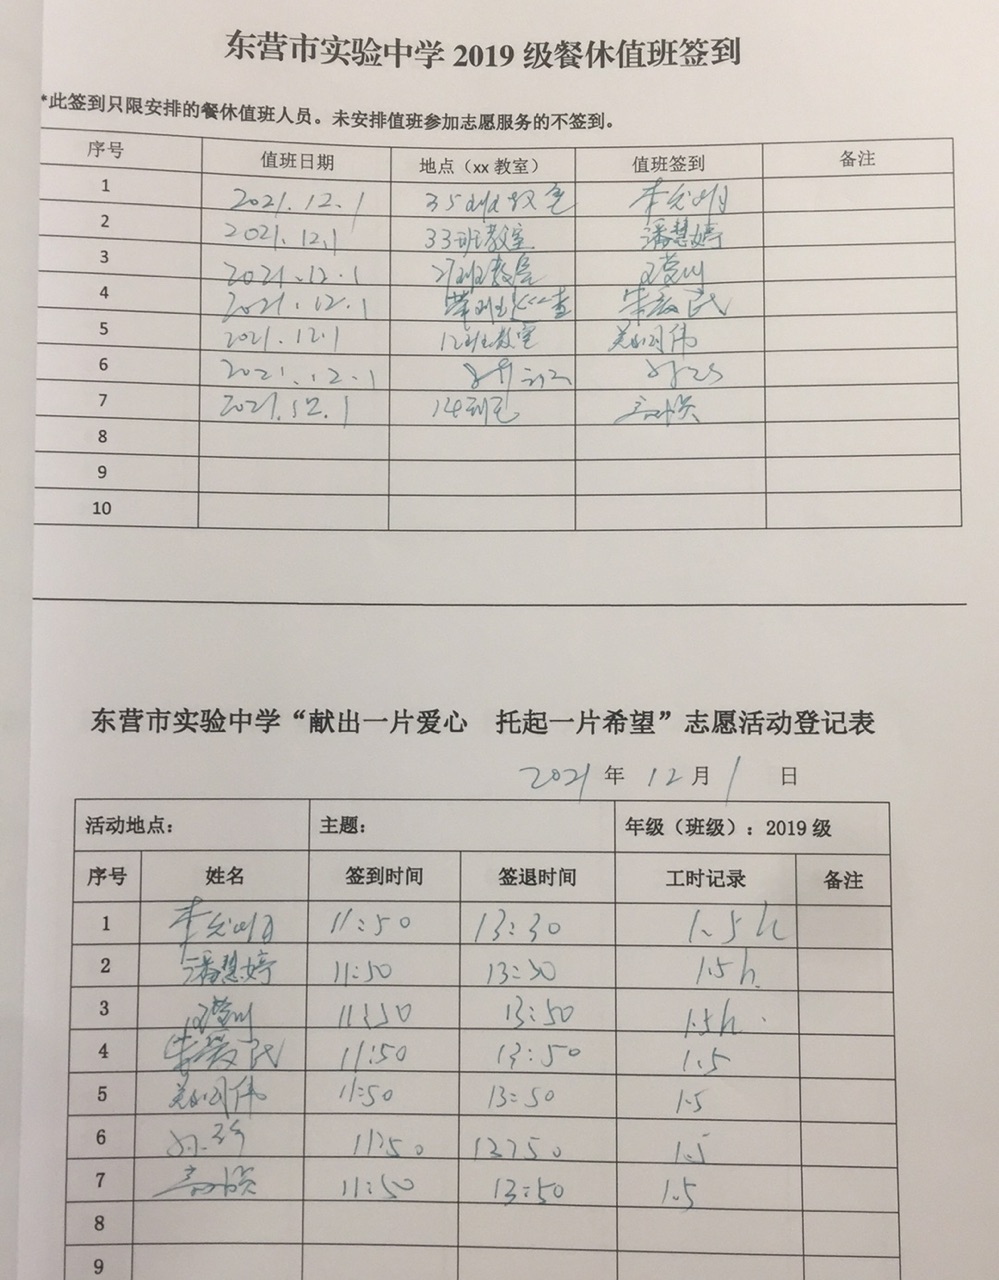 东营市实验中学 2019 级餐休值班签到
*此签到只限安排的餐休值班人员。未安排值班参加志愿服务的不签到。
序号 值班日期 地点（xx 教室） 值班签到 备注
1 2021.12.1 35班教室
2 2021.12.1 33班教室 潘慧婷
3 2021.12.1 21班教室
4 2021.12.1
5 2021.12.1 12班教室
6 2021.12.1
7 2021.12.1
8
9
10
东营市实验中学“献出一片爱心 托起一片希望”志愿活动登记表
2021 年 12 月 1 日
活动地点： 主题： 年级（班级）：2019 级
序号 姓名 签到时间 签退时间 工时记录 备注
1 11:50 13:30 1.5h
2 潘慧婷 11:50 13:30 1.5h
3 11:50 13:50 1.5h
4 11:50 13:50 1.5
5 11:50 13:50 1.5
6 11:50 1.5
7 11:50 13:50 1.5
8
9